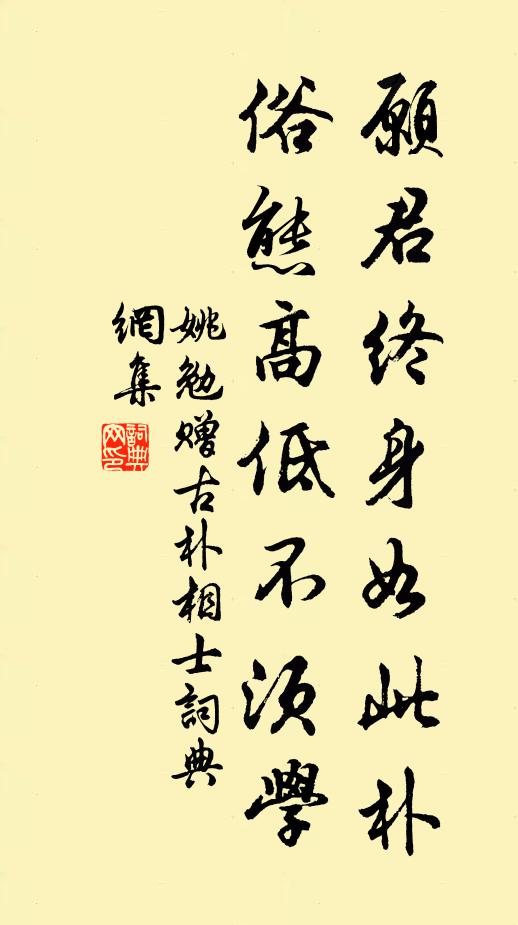 願君终身如此朴
俗態高低不須學
姚勉贈古朴相士詞典
網集
詞典
网印